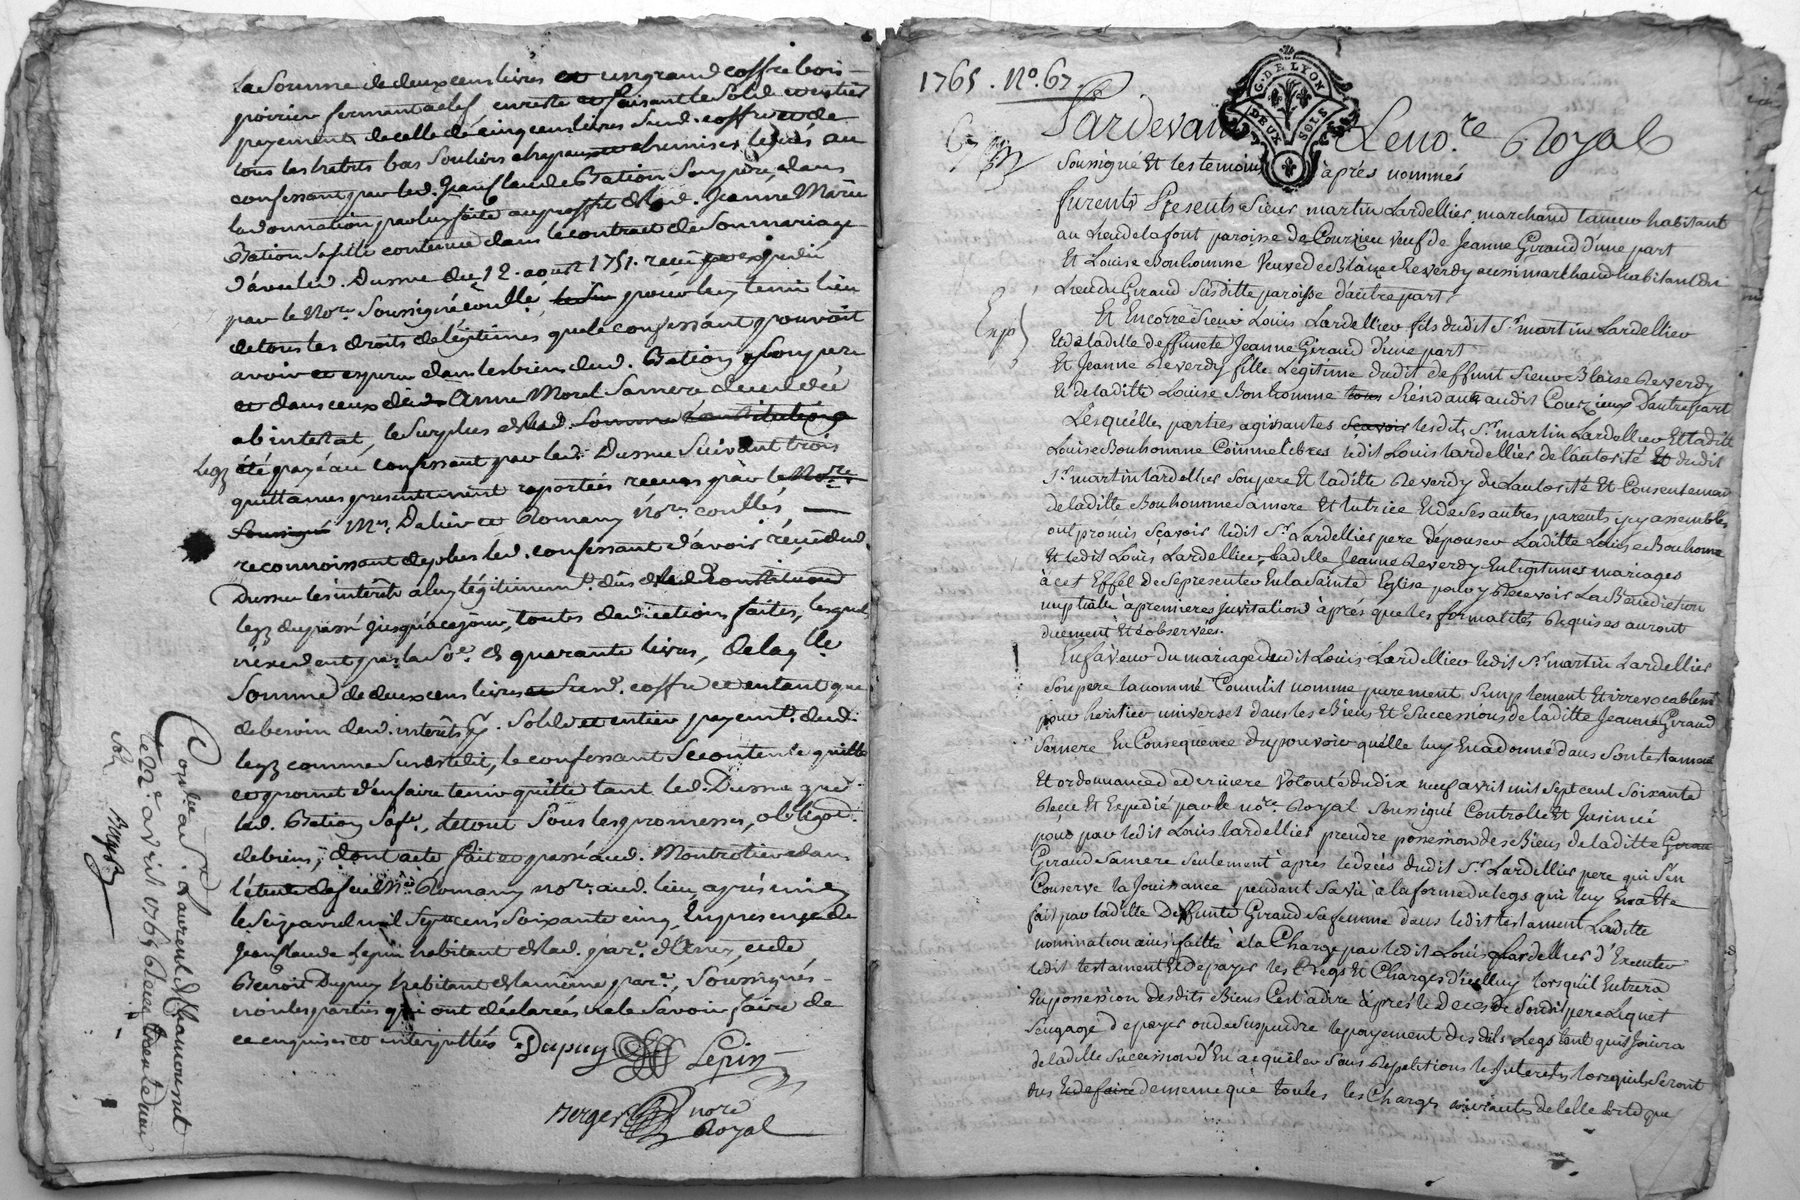 la Somme de deux cens livres et un grand coffre bois
poirier fermant a clef en reste et faisant le Solde et entier
payement de celle de cinq cens livres Susd. coffre et de
tous les habits bas Souliers chapeaux et chemises legués au
confessant par led. Jean Claude Bation Son pere, dans
la donnation par luy faite au proffit de lad. Jeanne Marie
Bation Sa fille contenue dans le contract de Son mariage
d'avec led. Dusme du 12. aoust 1751. receu et expedié
par le No.re Soussigné coullé, pour luy tenir lieu
de tous les droits de légitimes que le confessant pouvoit
avoir et esperer dans les biens dud. Bation Son pere
et dans ceux de Anne Morel Sa mere decedée
ab intestat, le Surplus de lad. Somme
Legz été payé au confessant par led. Dusme Suivant trois
quittances presentement reportées receues par le No.re
Soussigné M.es Delieu et Romany No.res coullés,
reconnoissant de plus led. confessant d'avoir receu dud.
Dusme les interêts a luy légitimem.t dûs de lad.
legz du passé jusqu'a ce jour, toutes deductions faites, lesquels
reviennent par la So.e de quarante livres, de laq.lle
Somme de deux cens livres Susd. coffre et entant que
de besoin desd. interêts p.r Solde et entier payem.t dud.
legz comme Susest dit, le confessant Se contente quitte
et promet d'en faire tenir quitte tant led. Dusme que
lad. Bation Sa fe., le tout Sous les promesses, obligat.
de biens, dont acte fait et passé aud. Montrotier dans
l'étude de M.e Romany no.re aud. lieu après midy
le Seize avril mil Sept cens Soixante cinq En presence de
Jean Claude Lepin habitant de lad. par.e d'Ancy, et de
Benoit Dupuy habitant de la même par.e, Soussignés
non les parties qui ont déclarées ne le Savoir faire de
ce enquises et interpellées Dupuy Lepin
Berger nore
Royal
Con.lé a S.t Laurent d Chamousset
le 22.e avril 1765 Receu treize sols
Berger
1765. No. 67
G. DE LYON
DEUX SOLS
67
Pardevant Le no.re Royal
Soussigné Et les temoins après nommés
furents Presents Sieur martin Lardellier marchand taneur habitant
au Lieu de la font paroisse de Courzieu veuf de Jeanne Giraud d'une part
Et Louise Bonhomme Veuve de Blaize Reverdy aussi marchand habitant du
Lieu du Giraud Susditte paroisse d'autre part
Exp.é Et Encorre Sieur Louis Lardellier fils dudit S.r martin Lardellier
Et de laditte deffuncte Jeanne Giraud d'une part
Et Jeanne Reverdy fille Légitime dudit deffunt Sieur Blaise Reverdy
Et de laditte Louise Bonhomme tous Résidants audit Courzieux D'autre part
Lesquelles parties agissantes Scavoir lesdits S.r martin Lardellier Et laditte
Louise Bonhomme Comme libres ledit Louis Lardellier de l'autorité Et dudit
S.r martin Lardellier Son pere Et laditte Reverdy de L'autorité Et Consentement
de laditte Bonhomme Sa mere Et tutrice Et de Ses autres parents icy assemblés
ont promis Sçavoir ledit S.r Lardellier pere d'epouser Laditte Louise Bonhomme
Et ledit Louis Lardellier, Laditte Jeanne Reverdy En legitimes mariages
à cet Effet de Se presenter En la Sainte Eglise pour y Recevoir La Benediction
nuptialle à premieres Invitations après que les formalités Requises auront
duement Eté observées.
En faveur du mariage dudit Louis Lardellier ledit S.r martin Lardellier
Son pere la nommé Comm'il nomme purement Simplement Et irrevocablement
pour heritier universel dans les Biens Et Successions de laditte Jeanne Giraud
Sa mere En Consequence du pouvoir qu'elle luy En a donné dans Son testament
Et ordonnance de derniere Volonté du dix neuf avril mil Sept cent Soixante
Reçu Et Expedié par le no.re Royal Soussigné Controllé Et Insinué
pour par ledit Louis Lardellier prendre possession des Biens de laditte Girau
Giraud Sa mere Seulement après le decès dudit S.r Lardellier pere qui S'en
Conserve la Jouissance pendant Sa vie à la forme du legs qui luy En a Ete
fait par laditte Deffunte Giraud Sa femme dans ledit testament Laditte
nomination ainsi faitte à la Charge par ledit Louis Lardellier d'Executer
ledit testament Et de payer les Legs Et Charges d'icelluy lorsqu'il Entrera
En possession desdits Biens C'est à dire après le Deces de Sondit pere Lequel
S'engage de payer ou de Suspendre le payement desdits Legs tant qu'il Jouira
de laditte Succession d'En acquitter Sans Repetitions les Interets lorsqu'ils Seront
dus Et de faire de meme que toutes les Charges courantes de telle Sorte que